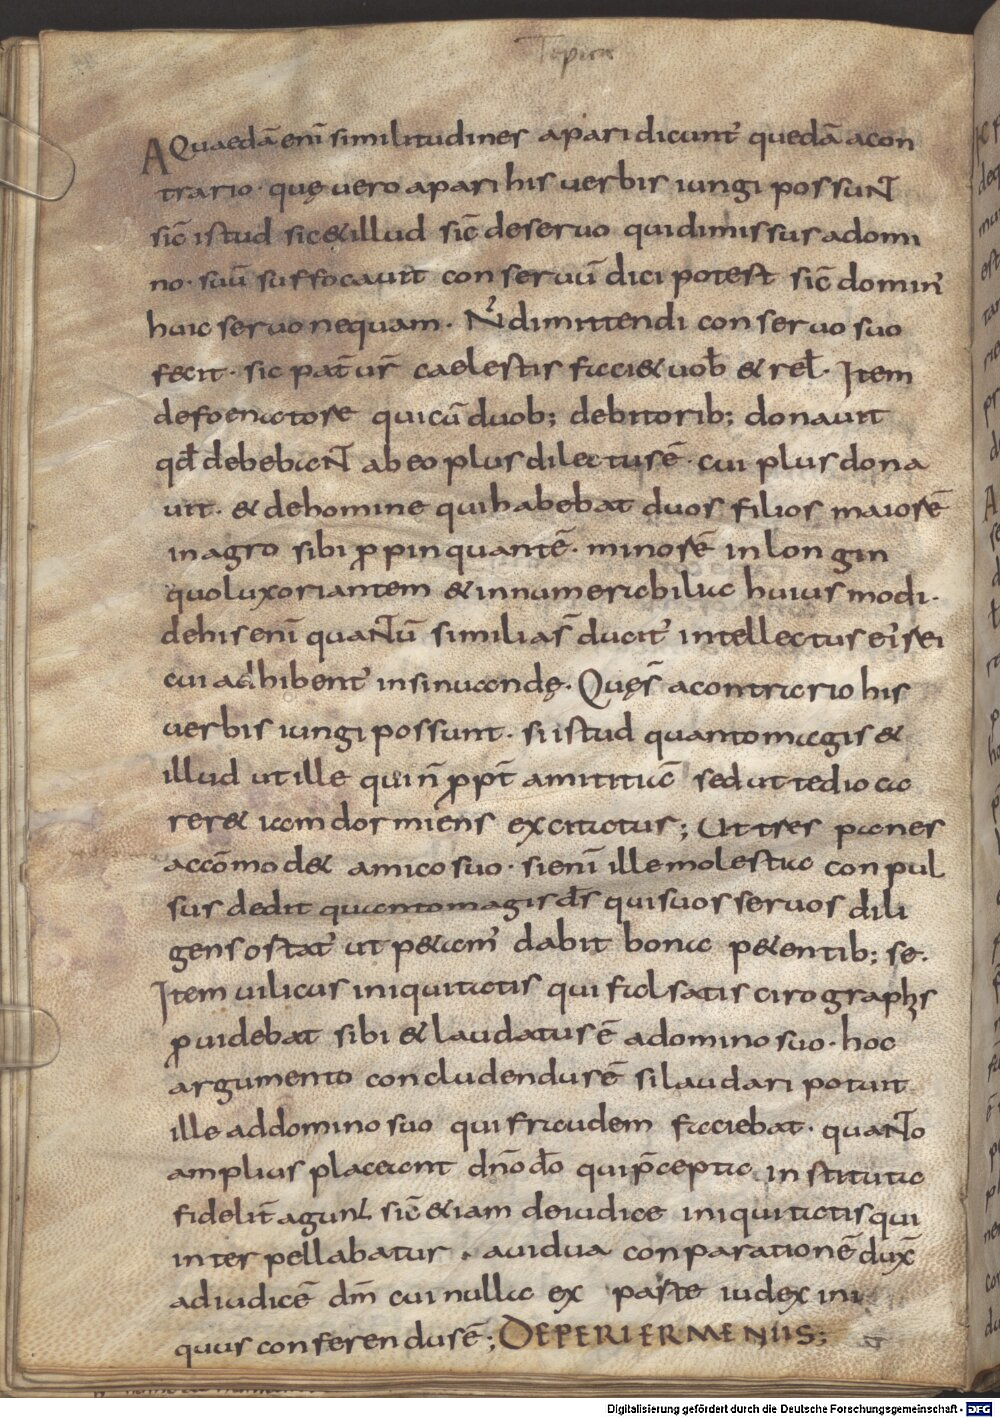 Topica
A Quaedā enī similitudines apari dicunt᷒ quedā acon
trario· quę uero apari his uerbis iungi possuNT
sic̄ istud sic & illud sic̄ deseruo qui dimissus adomi
no· suū suffocauit conseruū dici potest sic̄ domin᷒
huic seruo nequam· N᷒ dimittendi conseruo suo
fecit· sic pat̄ ur̄ caelestis faci& uob̄ & rel̄· Item
defoenatore qui cū duob; debitorib; donauit
qđ debebaNT ab eo plus dilectus ē· cui plus dona
uit· & dehomine qui habebat duos filios maiorē
in agro sibi ꝓpinquantē· minorē in lon gin
quo luxoriantem & innumerabilia huius modi·
dehis enī quaNTū similia s̄ ducit᷒ intellectus ei᷒ rei
cui adhibent᷒ insinuandę· Quę s̄ acontrario his
uerbis iungi possunt· si istud quanto magis &
illud ut ille qui n̄ ꝓpt̄ amititiā sed ut tedio ca
rer& iam dormiens excitatus; Ut tres panes
accōmod& amico suo· si enī ille molestia conpul
sus dedit quanto magis d̄s qui suos seruos dili
gens ostat᷒ ut p&am᷒ dabit bona p&entib; se·
Item uilicus iniquitatis qui falsatis cirographis
ꝓuidebat sibi & laudatus ē adomino suo· hoc
argumento concludendus ē si laudari potuit
ille addomino suo qui fraudem faciebat· quaNTo
amplius placeant dn̄o dō qui p̄cepta instituta
fidelit̄ agunt sic̄ &iam deiudice iniquitatis qui
inter pellabatur · auidua conparationē dux̄
adiudicē dm̄ cui nulla ex parte iudex ini
quus conferendus ē; DE PERIERMENIIS;
Digitalisierung gefördert durch die Deutsche Forschungsgemeinschaft - DFG